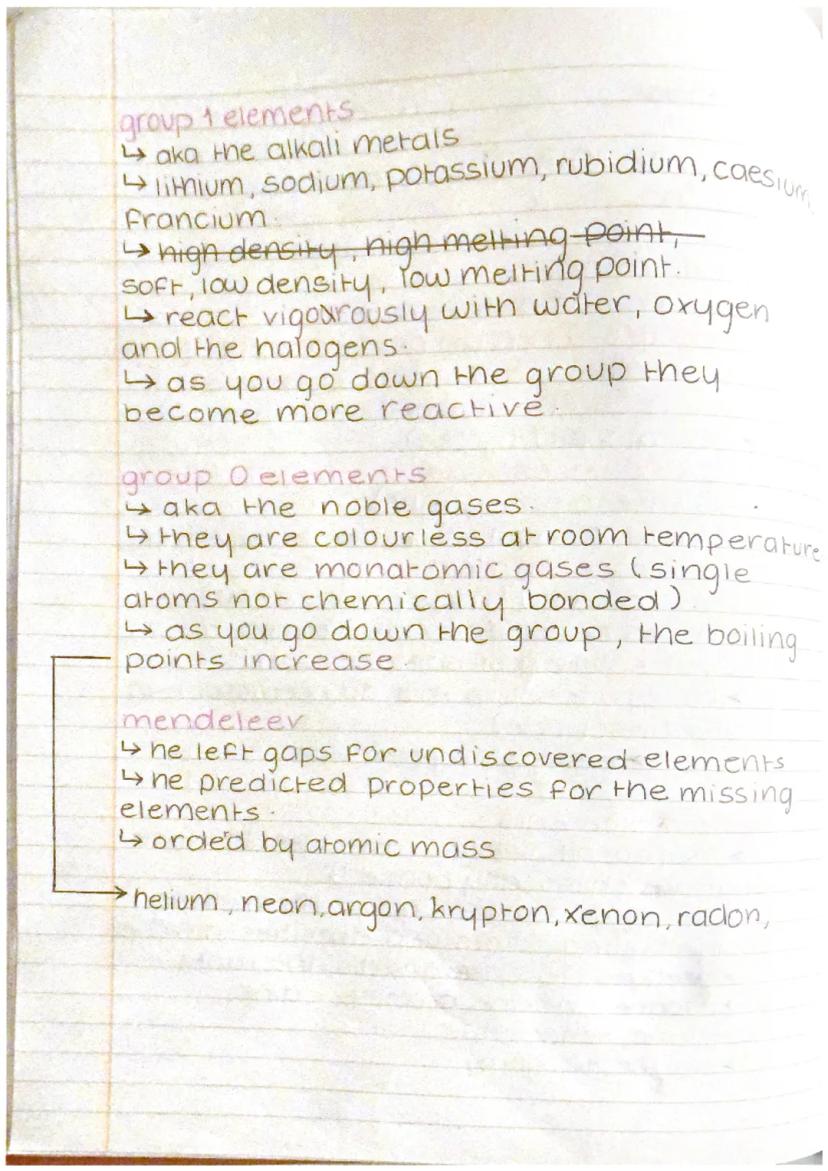 group 1 elements
↳ aka the alkali metals
↳ lithium, sodium, potassium, rubidium, caesium,
francium.
↳ high density, high melting point,
soft, low density, low melting point.
↳ react vigourously with water, oxygen
and the halogens.
↳ as you go down the group they
become more reactive.
group 0 elements
↳ aka the noble gases.
↳ they are colourless at room temperature
↳ they are monatomic gases (single
atoms not chemically bonded)
↳ as you go down the group, the boiling
points increase.
mendeleev
↳ he left gaps for undiscovered elements
↳ he predicted properties for the missing
elements.
↳ orded by atomic mass
helium, neon, argon, krypton, xenon, radon,